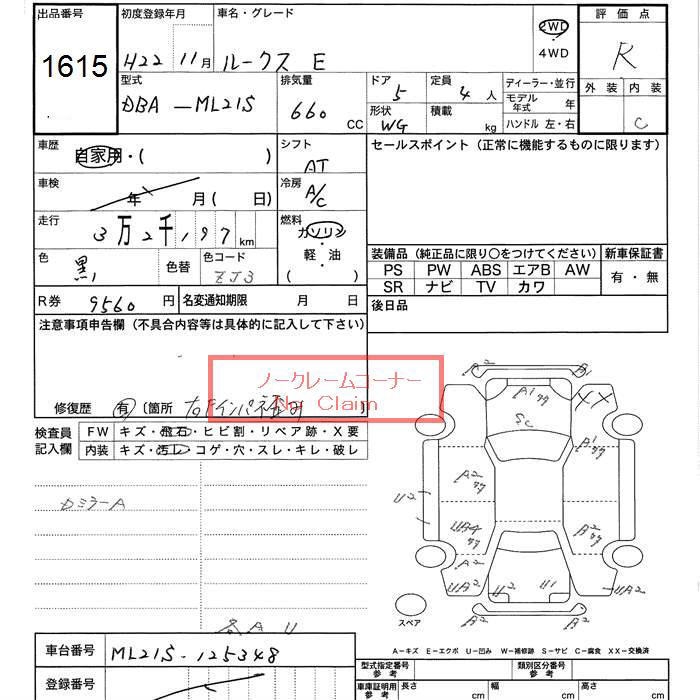 出品番号 1615
初度登録年月 H22 11月
車名・グレード ルークス E
2WD
4WD
評価点 R
外装 内装 C
型式 DBA-ML21S
排気量 660 CC
ドア 5
形状 WG
定員 4人
積載 kg
ディーラー・並行
モデル年式 年
ハンドル 左・右
車歴 自家用・( )
シフト AT
セールスポイント(正常に機能するものに限ります)
車検 年 月( 日)
冷房 A/C
走行 3万2千197km
燃料 ガソリン・軽油( )
色 黒
色替
色コード ZJ3
装備品(純正品に限り○をつけてください)
新車保証書 有・無
PS PW ABS エアB AW
SR ナビ TV カワ
R券 9560円
名変通知期限 月 日
後日品
注意事項申告欄(不具合内容等は具体的に記入して下さい)
ノークレームコーナー
No Claim
修復歴 有[箇所
検査員記入欄
FW キズ・飛石・ヒビ割・リペア跡・X要
内装 キズ・汚レ・コゲ・穴・スレ・キレ・破レ
カミラーA
A2
A1
XX
A2
U2
A2
UA2
U2
U1
UA2
A2
A2
スペア
A-キズ E-エクボ U-凹み W-補修跡 S-サビ C-腐食 XX-交換済
車台番号 ML21S-125348
登録番号
型式指定番号 参考
類別区分番号 参考
車庫証明用 参考 長さ cm 幅 cm 高さ cm